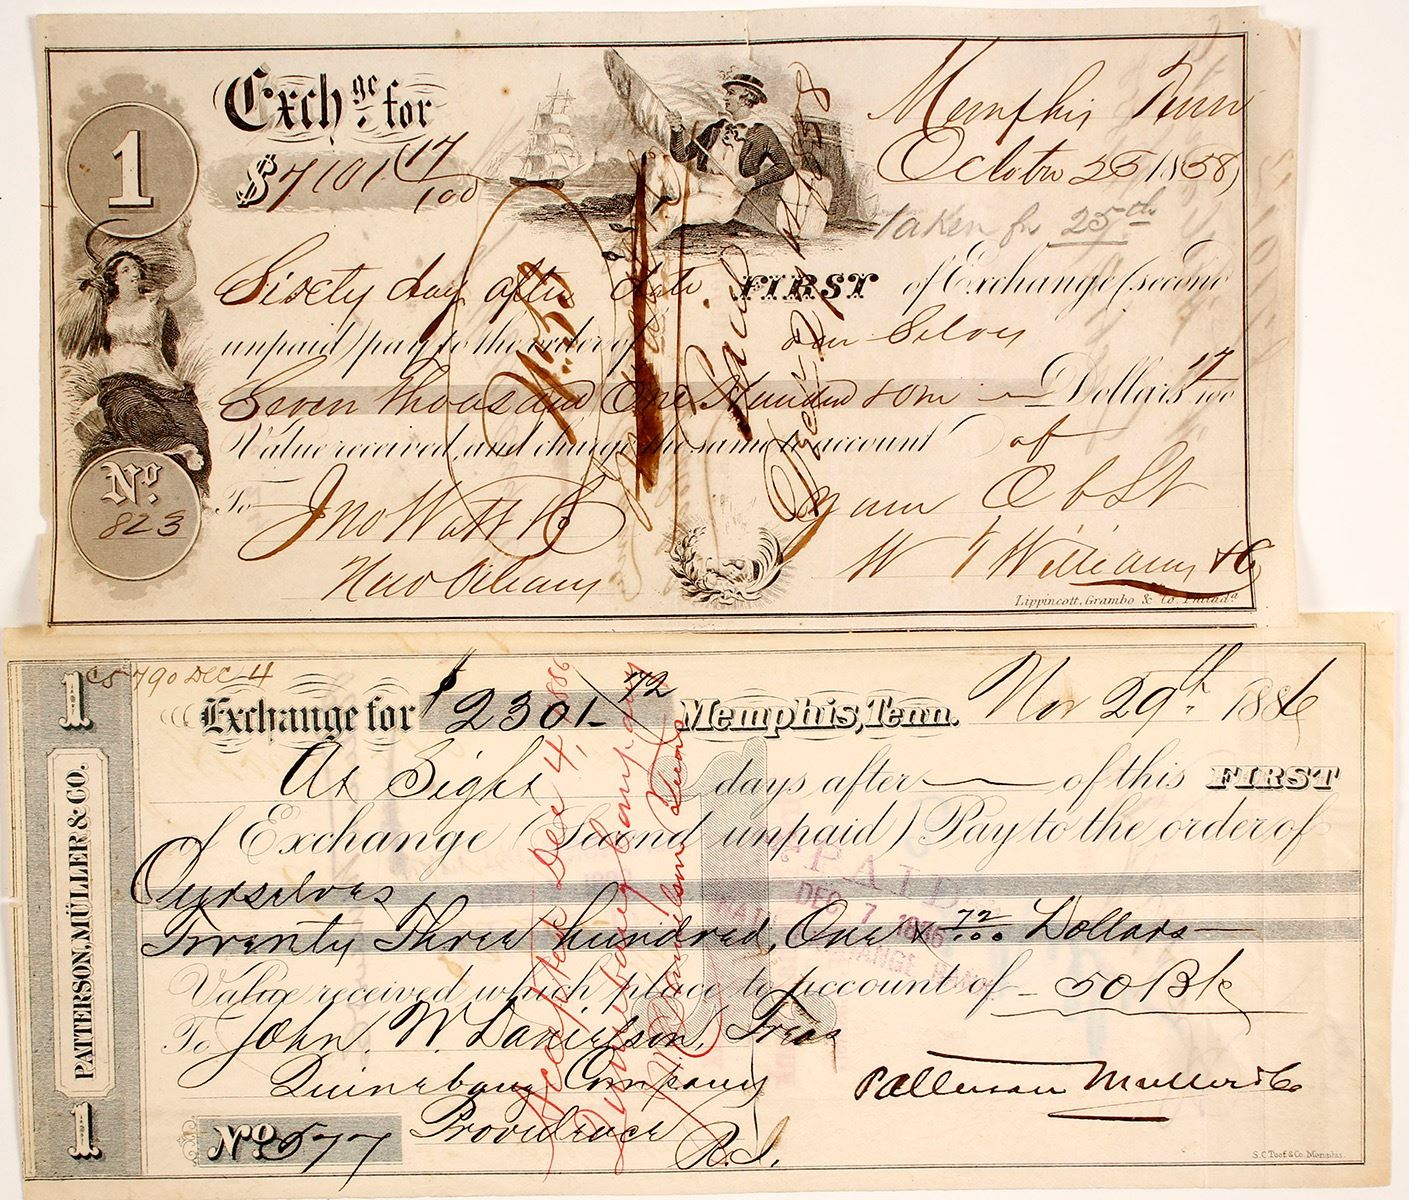 1
Exchge. for
$7101 17/100
Memphis Tenn
October 25 1858
taken for 25th
Sixty day after date FIRST of Exchange (second
unpaid) pay to the order of Our Selves
Seven Thousand One Hundred & One Dollars 17/100
Value received, and charge the same to account of
No.
823
To Jno Watt & Co
New Orleans
Your Ob St
W Williams & Co
Lippincott, Grambo & Co. Philada.
1
790 Dec 4
Exchange for $2301 72 Memphis, Tenn. Nov 29th 1886
At Sight days after of this FIRST
of Exchange (Second unpaid) Pay to the order of
Ourselves
Twenty Three hundred, One & 72/100 Dollars
Value received which place to account of 50 B/c
To John. W. Danielson, Treas
Quinebaug Company
Providence
R.I.
Patterson Muller & Co
No 577
PATTERSON, MÜLLER & CO.
1
S.C. Toof & Co. Memphis.
Accepted Dec 4, 1886
Quinebaug Company
J W Danielson Treas
PAID
DEC 7 1886